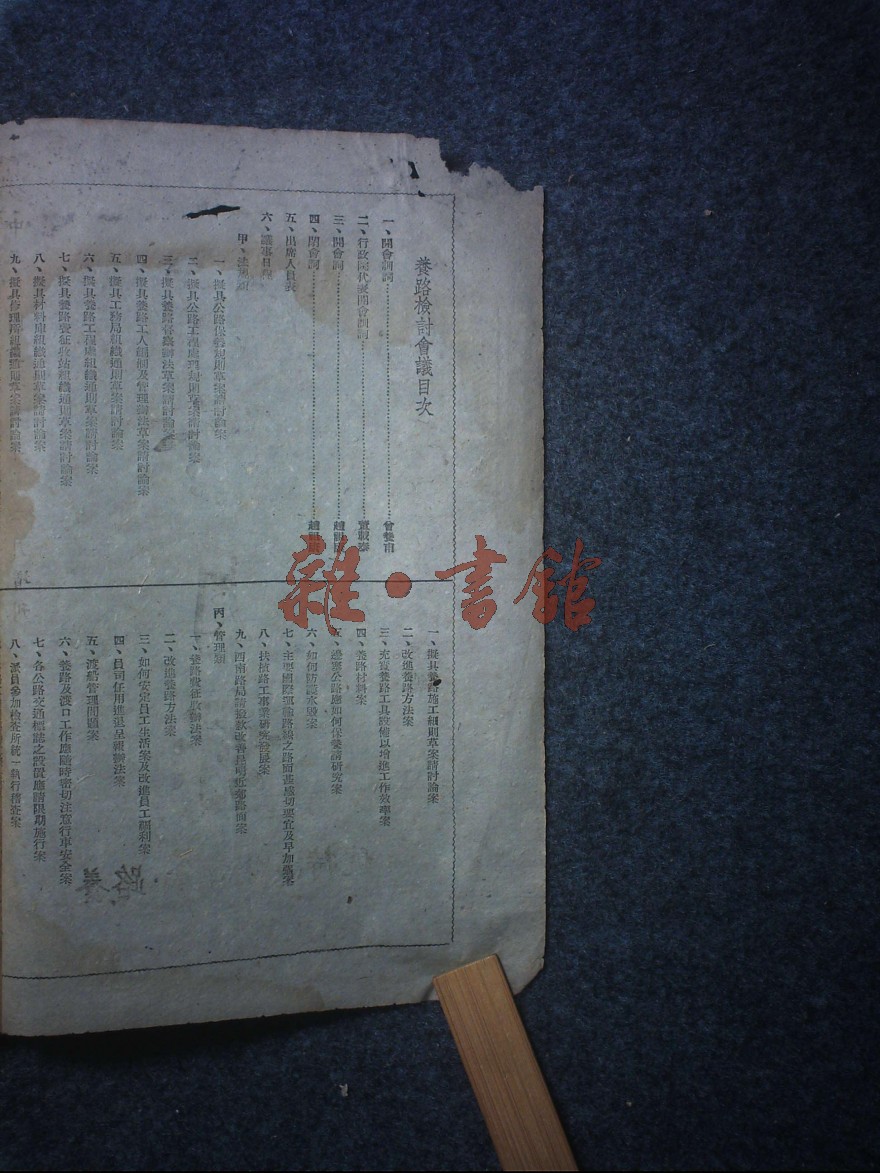 養路檢討會議目次
一、開會訓詞
曾養甫
二、行政院代表開會訓詞
三、開會詞
四、閉會詞
五、出席人員表
六、議事日程
甲、法規類
一、擬具公路保養規則草案請討論案
二、擬具公路工程處理規則草案請討論案
三、擬具養路督察辦法草案請討論案
四、擬具養路工人組織及管理辦法草案請討論案
五、擬具工務局組織通則草案請討論案
六、擬具養路工程處組織通則草案請討論案
七、擬具養路費征收站組織通則草案請討論案
八、擬具材料庫組織通則草案請討論案
九、擬具修理廠組織通則草案請討論案
一、擬具養路施工細則草案請討論案
二、改進養路方法案
三、充實養路工具設備以增進工作效率案
四、養路材料案
五、邊寒公路應如何保養請研究案
六、如何防護水毀案
七、主要國際運輸路線之路面甚感切要宜及早加鋪案
八、扶植路工事業研究發展案
九、西南路局請撥款改善昆明近郊路面案
丙、管理類
一、養路費征收辦法案
二、改進養路方法案
三、如何安定員工生活案及改進員工福利案
四、員司任用進退呈報辦法案
五、渡船管理問題案
六、養路及渡口工作應隨時密切注意行車安全案
七、各公路交通標誌之設置應請限期施行案
八、派員參加檢查所統一執行稽查案
雜·書館